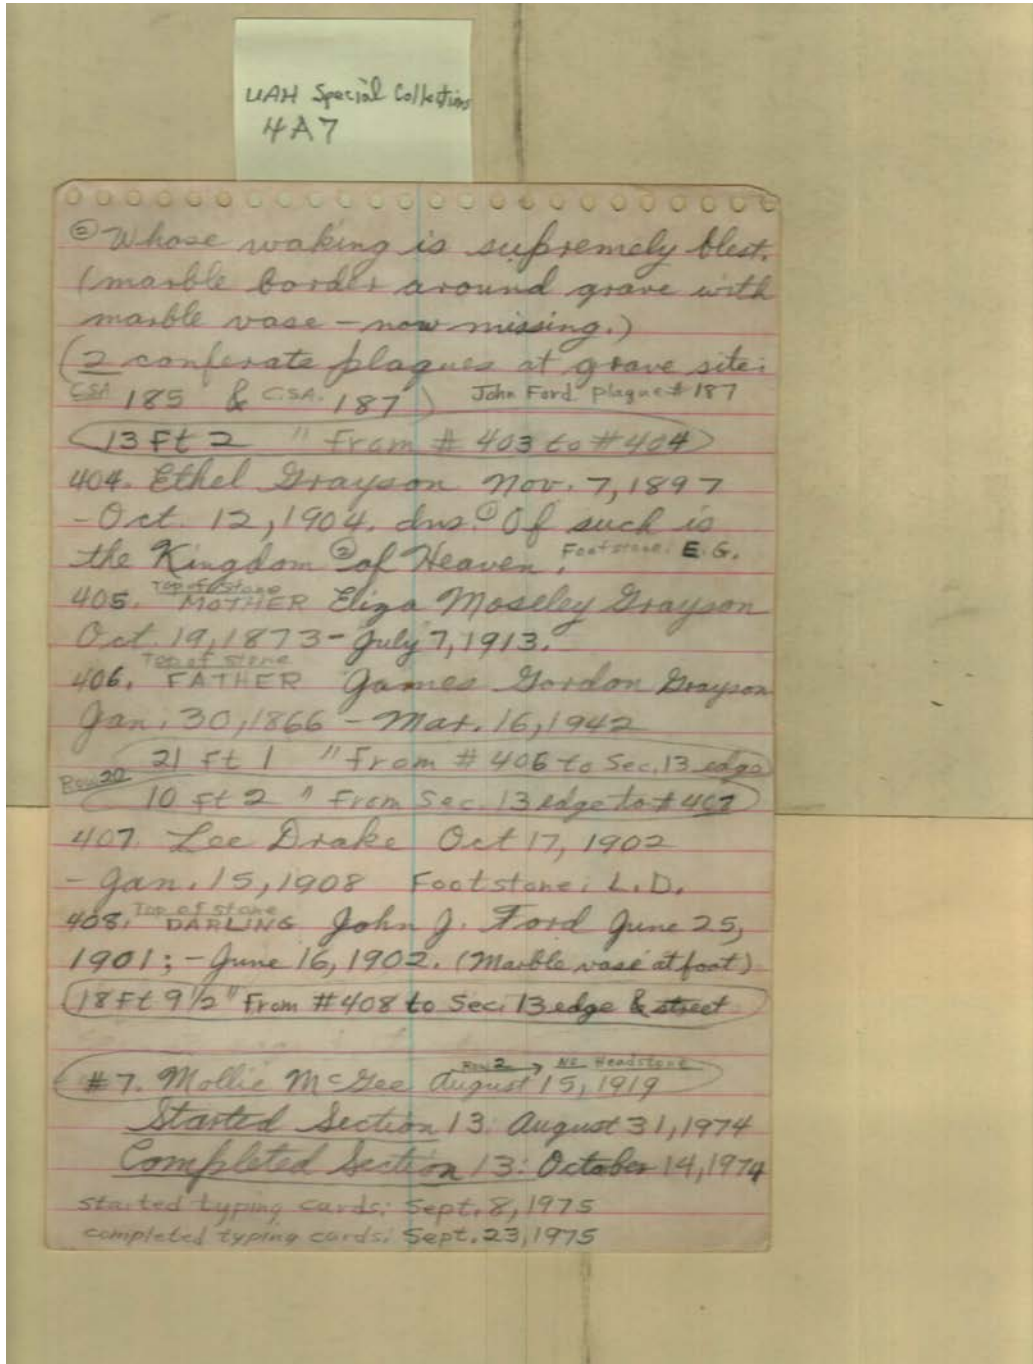 UAH Special Collections
4A7
② Whose waking is supremely blest.
(marble border around grave with
marble vase - now missing.)
(2 conferate plagues at grave site:
CSA 185 & C.S.A. 187) John Ford plague # 187
13 Ft 2 " From # 403 to # 404
404. Ethel Grayson Nov. 7, 1897
- Oct. 12, 1904. Ins. ① Of such is
the Kingdom ② of Heaven. Footstone: E.G.
Top of stone
405. MOTHER Eliza Moseley Grayson
Oct. 19, 1873 - July 7, 1913.
Top of stone
406. FATHER James Gordon Grayson
Jan. 30, 1866 - Mar. 16, 1942
21 Ft 1 " From # 406 to Sec. 13 edge
Row 20
10 Ft 2 " From Sec. 13 edge to # 407
407. Lee Drake Oct 17, 1902
- Jan. 15, 1908 Footstone: L.D.
Top of stone
408. DARLING John J. Ford June 25,
1901; - June 16, 1902. (Marble vase at foot)
18 Ft 9 1/2 " From # 408 to Sec. 13 edge & street
Row 2 → No Headstone
# 7. Mollie McGee August 15, 1919
Started Section 13: August 31, 1974
Completed Section 13: October 14, 1974
started typing cards: Sept. 8, 1975
completed typing cards: Sept. 23, 1975